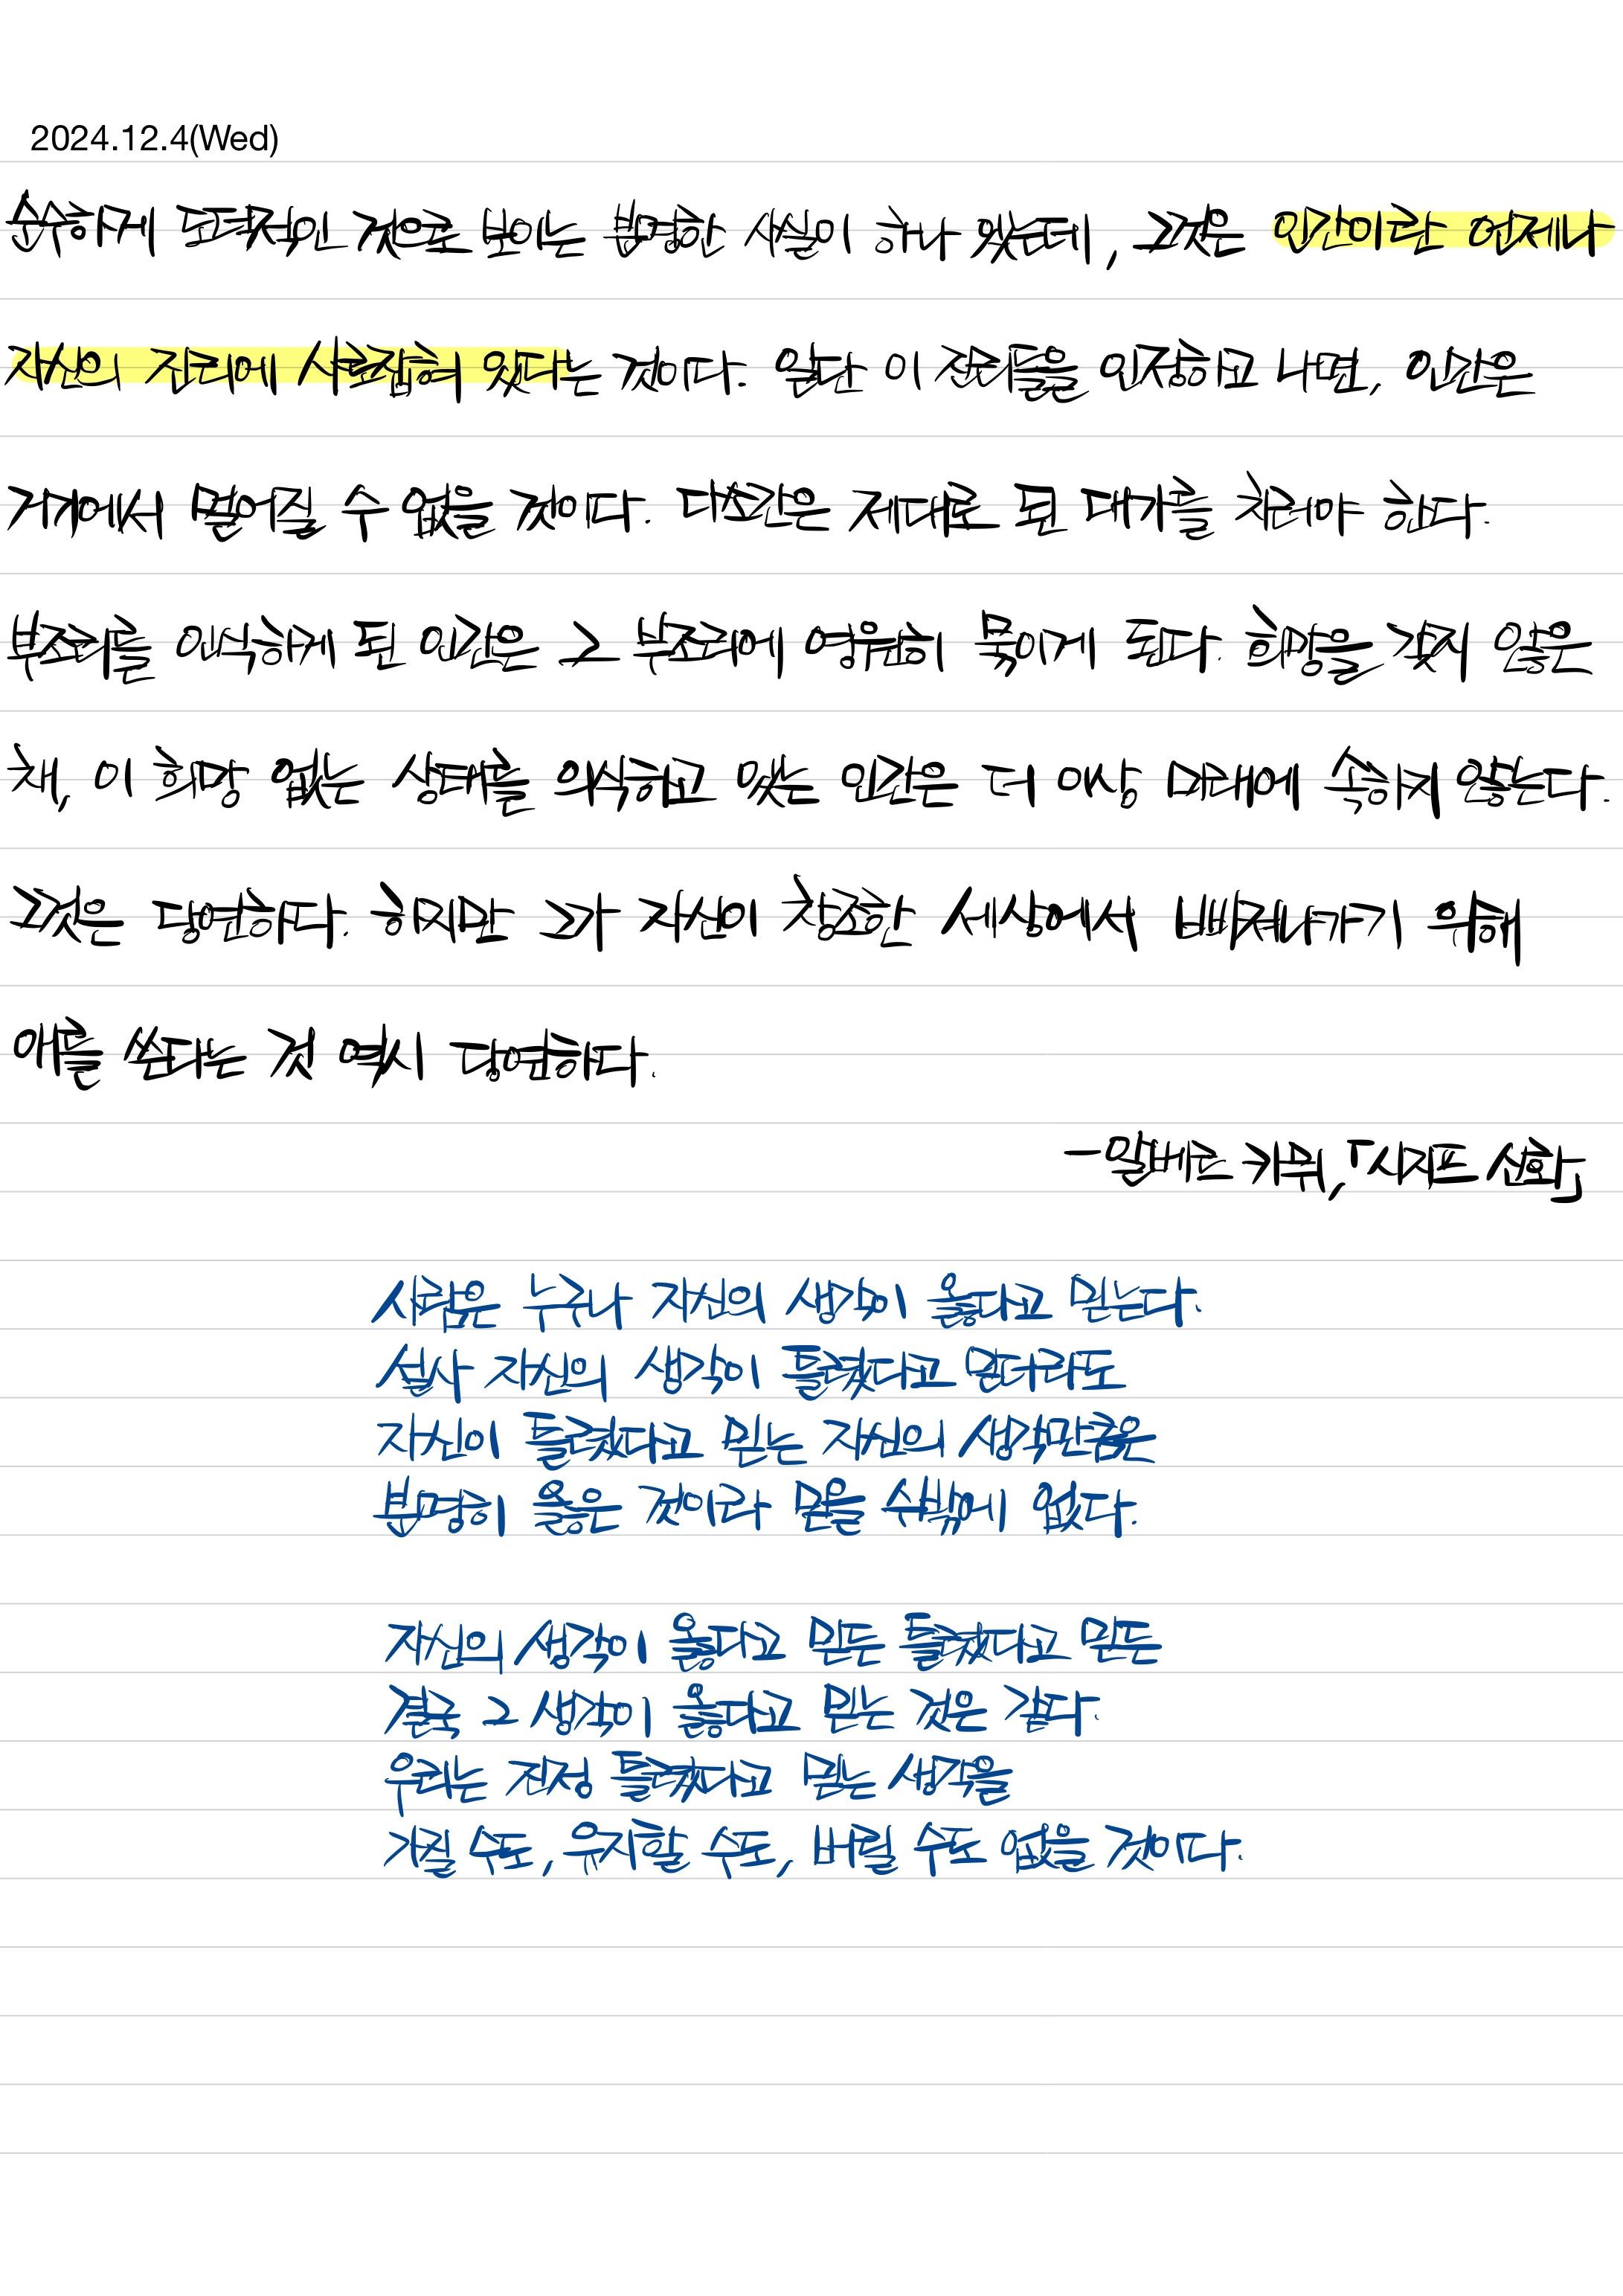 2024.12.4(Wed)
순수하게 도덕적인 것으로 보이는 분명한 사실이 하나 있는데, 그것은 인간이란 언제나
자신의 진리에 사로잡혀 있다는 것이다. 일단 이 진리들을 인정하고 나면, 인간은
거기에서 떨어질 수 없을 것이다. 다소간은 제대로 된 대가를 치러야 한다.
부조리를 인식하게 된 인간은 그 부조리에 영원히 묶이게 된다. 희망을 갖지 않은
채, 이 희망 없는 상태를 의식하고 있는 인간은 더 이상 미래에 속하지 않는다.
그것은 당연하다. 하지만 그가 자신이 창조한 세상에서 빠져나가기 위해
애를 쓴다는 것 역시 당연하다.
-알베르 카뮈,「시지프 신화」
사람은 누구나 자신의 생각이 옳다고 믿는다.
설사 자신의 생각이 틀렸다고 믿더라도
자신이 틀렸다고 믿는 자신의 생각만큼은
분명히 옳은 것이라 믿을 수밖에 없다.
자신의 생각이 옳다고 믿든 틀렸다고 믿든
결국 그 생각이 옳다고 믿는 것은 같다.
우리는 진정 틀렸다고 믿는 생각을
가질 수도, 유지할 수도, 버릴 수도 없을 것이다.